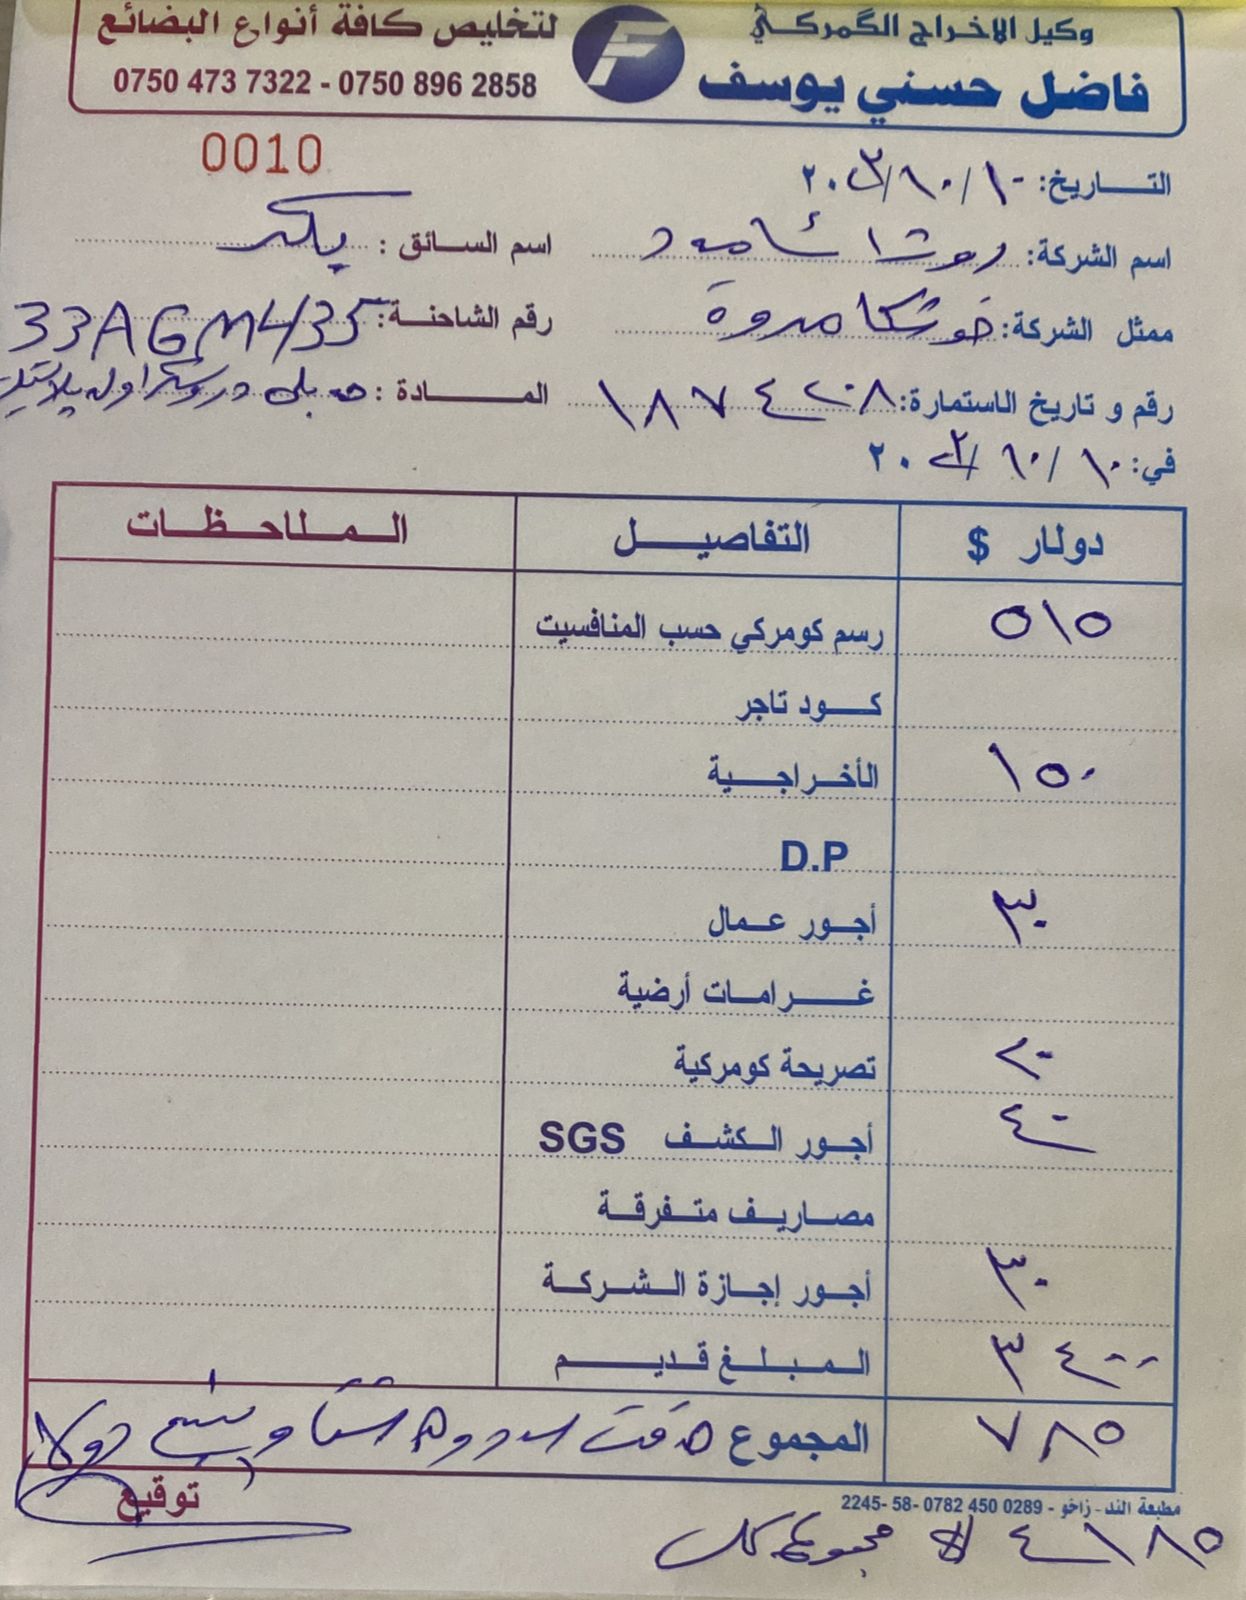 وكيل الاخراج الگمركي
لتخليص كافة أنواع البضائع
فاضل حسني يوسف
0750 473 7322 - 0750 896 2858
0010
التاريخ: ١٠/١٠/٢٠٢٣
اسم الشركة:
اسم السائق :
ممثل الشركة:
رقم الشاحنة: 33AGM435
رقم و تاريخ الاستمارة: ١٨٧٤٢٠٨
المادة :
في: ١٠/١٠/٢٠٢٣
دولار $ التفاصيل الملاحظات
٥١٥ رسم كومركي حسب المنافسيت
كود تاجر
١٥٠ الأخراجية
D.P
٣٠ أجور عمال
غرامات أرضية
٢٠ تصريحة كومركية
٤٠ أجور الكشف SGS
مصاريف متفرقة
٣٠ أجور إجازة الشركة
٣٤٠٠ المبلغ قديم
٧٨٥ المجموع
توقيع
مطبعة الند - زاخو - 0289 450 0782 -58 -2245
٤١٨٥ #